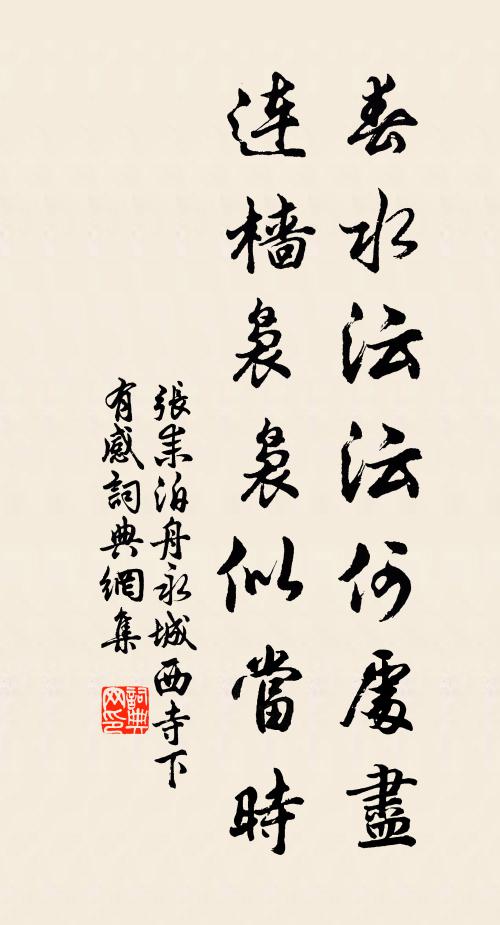 春水沄沄何處盡
連檣裊裊似當時
張耒泊舟永城西寺下
有感詞典網集
詞典網印